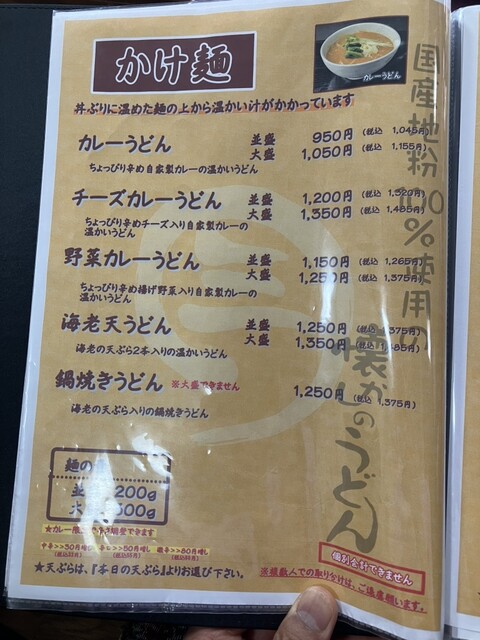 かけ麺
カレーうどん
丼ぶりに温めた麺の上から温かい汁がかかっています
カレーうどん 並盛 950円 (税込 1,045円)
大盛 1,050円 (税込 1,155円)
ちょっぴり辛め自家製カレーの温かいうどん
チーズカレーうどん 並盛 1,200円 (税込 1,320円)
大盛 1,350円 (税込 1,485円)
ちょっぴり辛めチーズ入り自家製カレーの
温かいうどん
野菜カレーうどん 並盛 1,150円 (税込 1,265円)
大盛 1,250円 (税込 1,375円)
ちょっぴり辛め揚げ野菜入り自家製カレーの
温かいうどん
海老天うどん 並盛 1,250円 (税込 1,375円)
大盛 1,350円 (税込 1,485円)
海老の天ぷら2本入りの温かいうどん
鍋焼きうどん ※大盛できません 1,250円 (税込 1,375円)
海老の天ぷら入りの鍋焼きうどん
国産地粉100%使用の
懐かしのうどん
麺の
並 200g
大 300g
★カレー できます
★天ぷらは、『本日の天ぷら』よりお選び下さい。
個別会計できません
※複数人での取り分けは、ご遠慮願います。